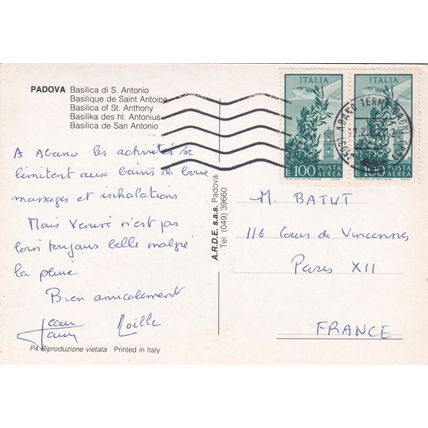 PADOVA Basilica di S. Antonio
Basilique de Saint Antoine
Basilica of St. Anthony
Basilika des hl. Antonius
Basilica de San Antonio
A Abano les activités se
limitent aux bains de boue
massages et inhalations
Mais Venise n'est pas
loin toujours belle malgré
la pluie
Bien amicalement
Jean
P4 Riproduzione vietata Printed in Italy
A.R.D.E. s.a.s. Padova
Tel. (049) 39660
ITALIA
100 POSTA AEREA
ITALIA
100 POSTA AEREA
ABANO TERME
M. BATUT
116 Cours de Vincennes
Paris XII
FRANCE